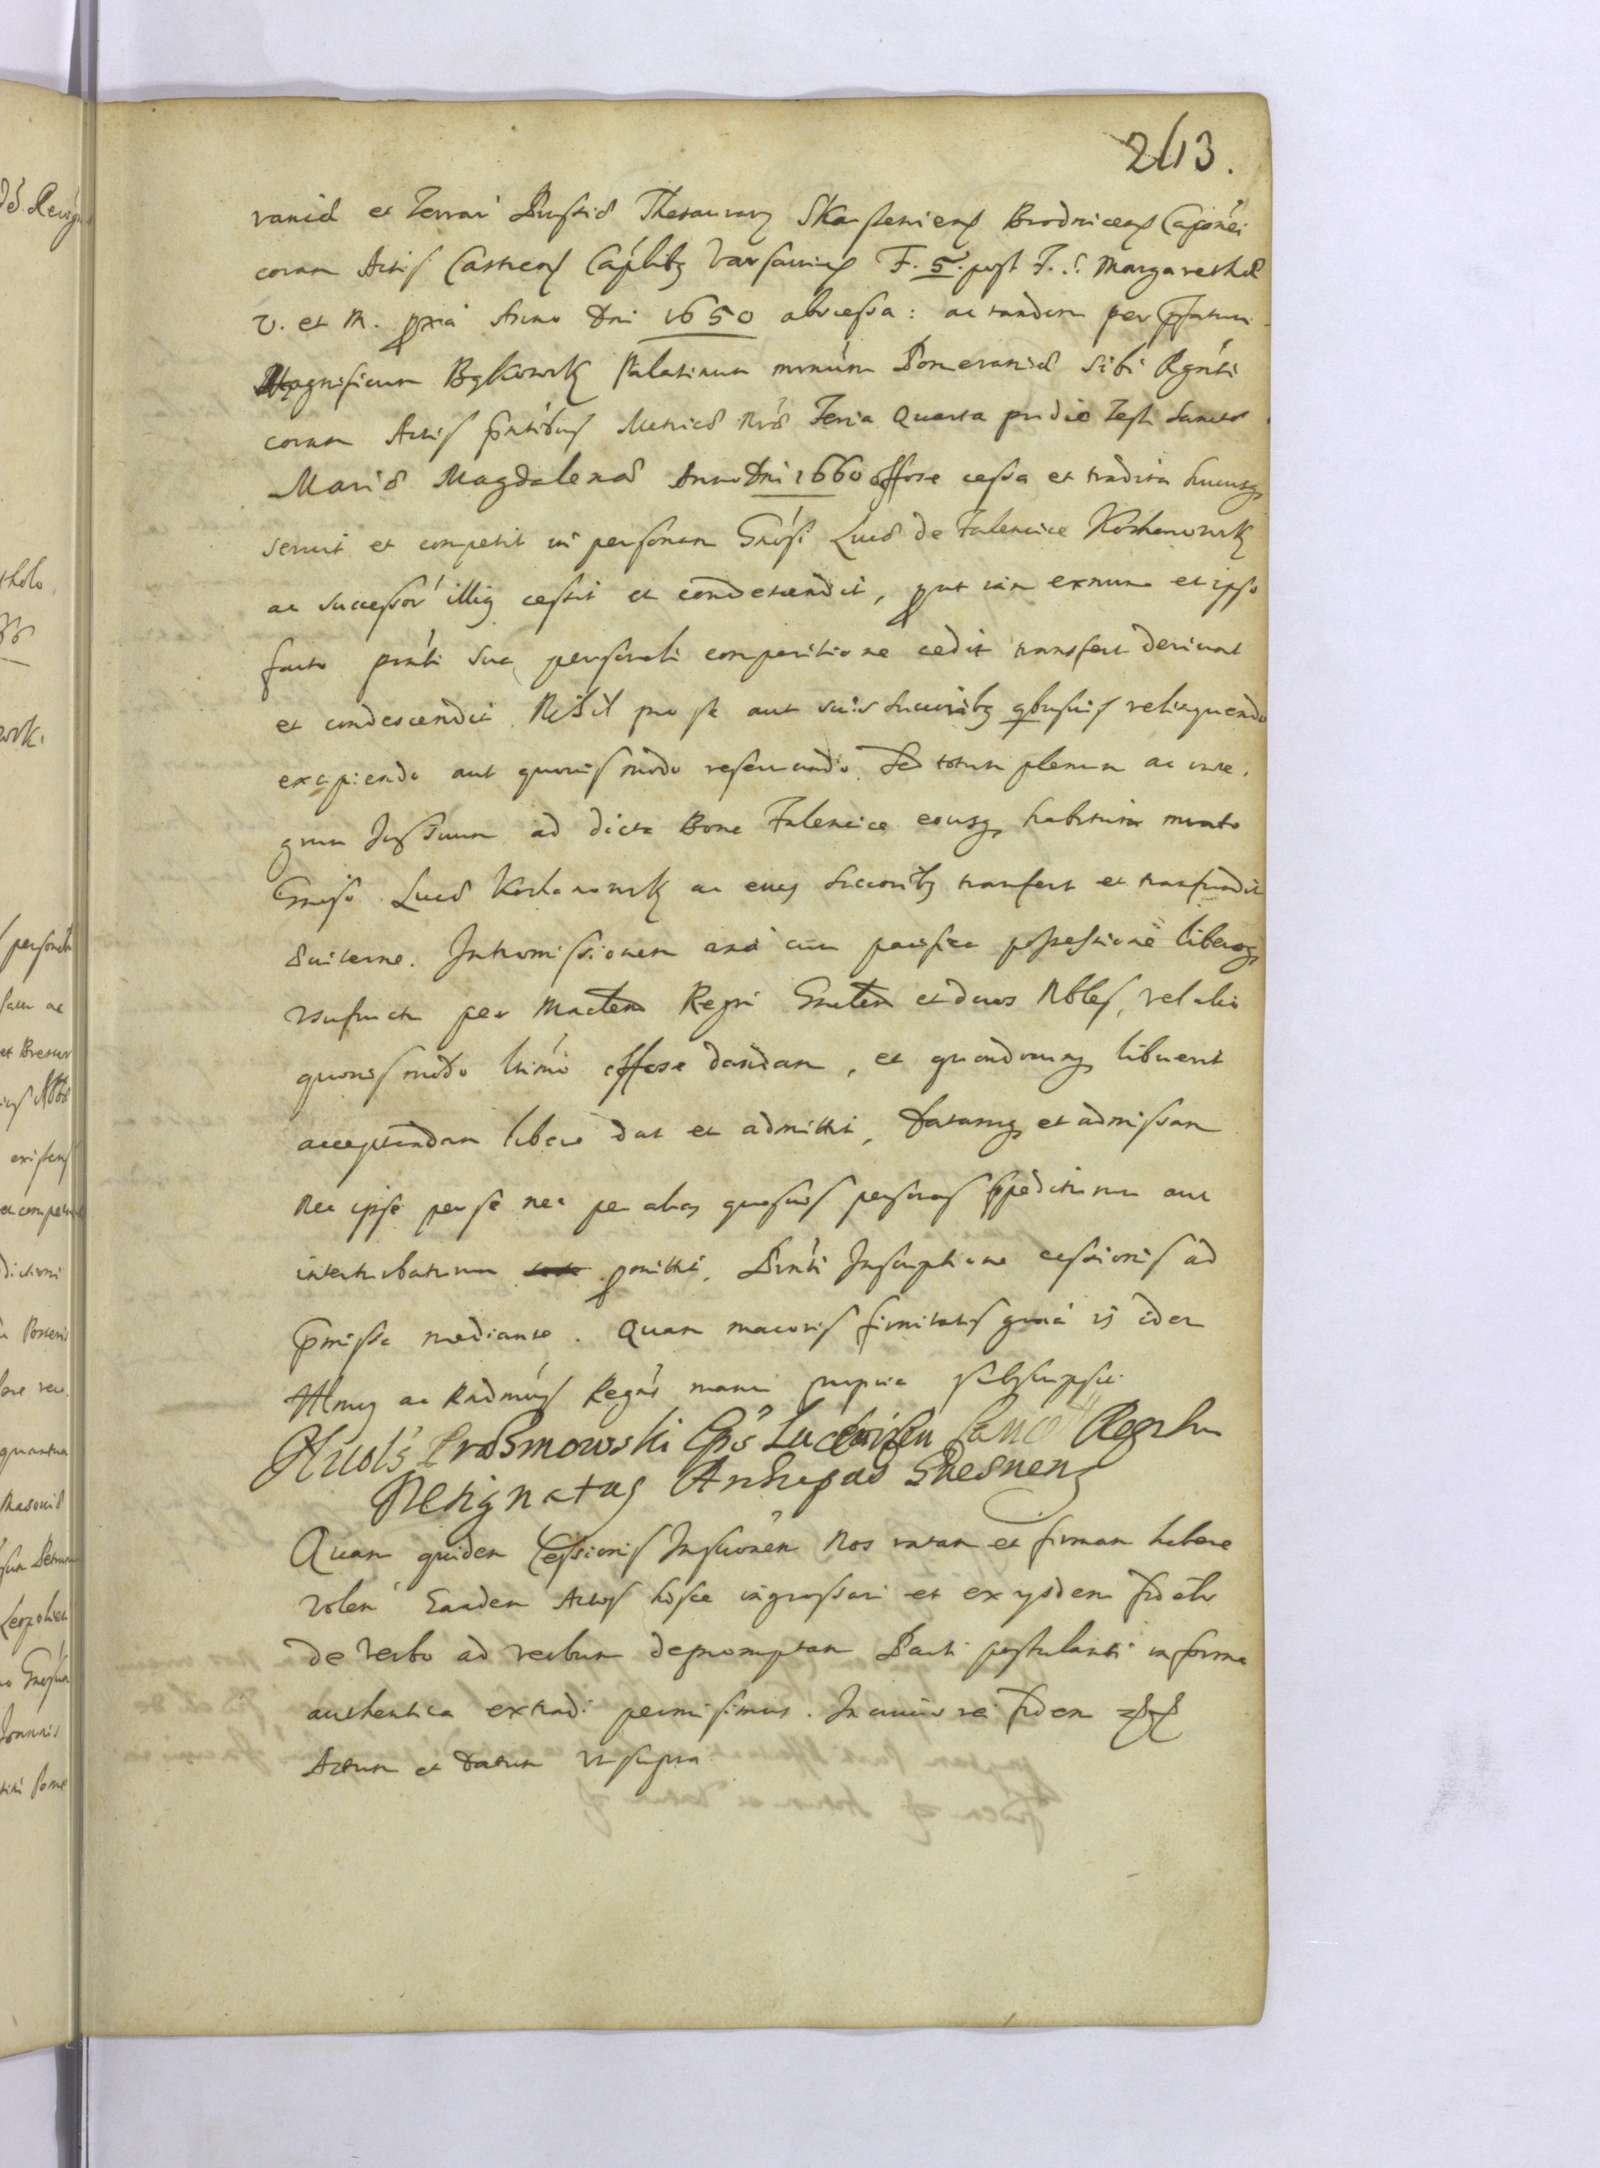 213.
raniæ et Terrar Prussiæ Thesaurarij Skarszeviens Brodnicens Capnei
coram Actis Castrens Capitlibz Varsavien F. 5. post F. S. Margarethæ
V. et M. pxia Anno Dni 1650 abcessa: ac tandem per pfatum
Magnificum Bąkowsk Palatinum mnum Pomeraniæ sibi Rgnti
coram Actis pntibus Metricæ Rnæ Feria Quarta pridie Festi Sanctæ
Mariæ Magdalenæ Anno Dni 1660 offose cessa et tradita hucusq
servit et competit in personam Gnosi Lucæ de Falencice Kochanowsk
ac successor illiq cessit et condescendit, put iam exnunc et ipso
facto pnti sua personali comparitione cedit transfert derivat
et condescendit. Nihil pro se aut suis succoribz qbusvis relinquendo
excipiendo aut quovis modo reservando. Sed totum plenum ac inte
grum Jus suum ad dicta Bona Falencice eousq habitum mnato
Gnoso Lucæ Kochanowsk ac eius succoribz transfert et transfundit
Suiterne. Intromissionem axa cum pacifica possessione liberoq
usufructu per Mactem Regni Gnalem et duos Nbles, vel alio
quovis modo ltimo offose dandam, et quandocunq libuerit
acceptandam libere dat et admittit, datamq et admissam
nec ipse per se nec per alias quasvis personas ppediturum aut
interturbaturum pmittit. Pnti Inscriptione cessionis ad
pmissa mediante. Quam maioris firmitatis gratia is idem
Illmus ac Rndmus Regns manu propria subscripsit.
Nicols Prażmowski Eps Luceorien Canc Regni
Resignatus Archiepus Gnesnens
Quam quidem Cessionis Inscrionem Nos ratam et firmam habere
volen Eandem Actis hisce ingrossari et ex ijsdem fidelr
de verbo ad verbum depromptam Parti postulanti in forma
authentica extradi permisimus. In cuius rei fidem
Actum et datum ut supra